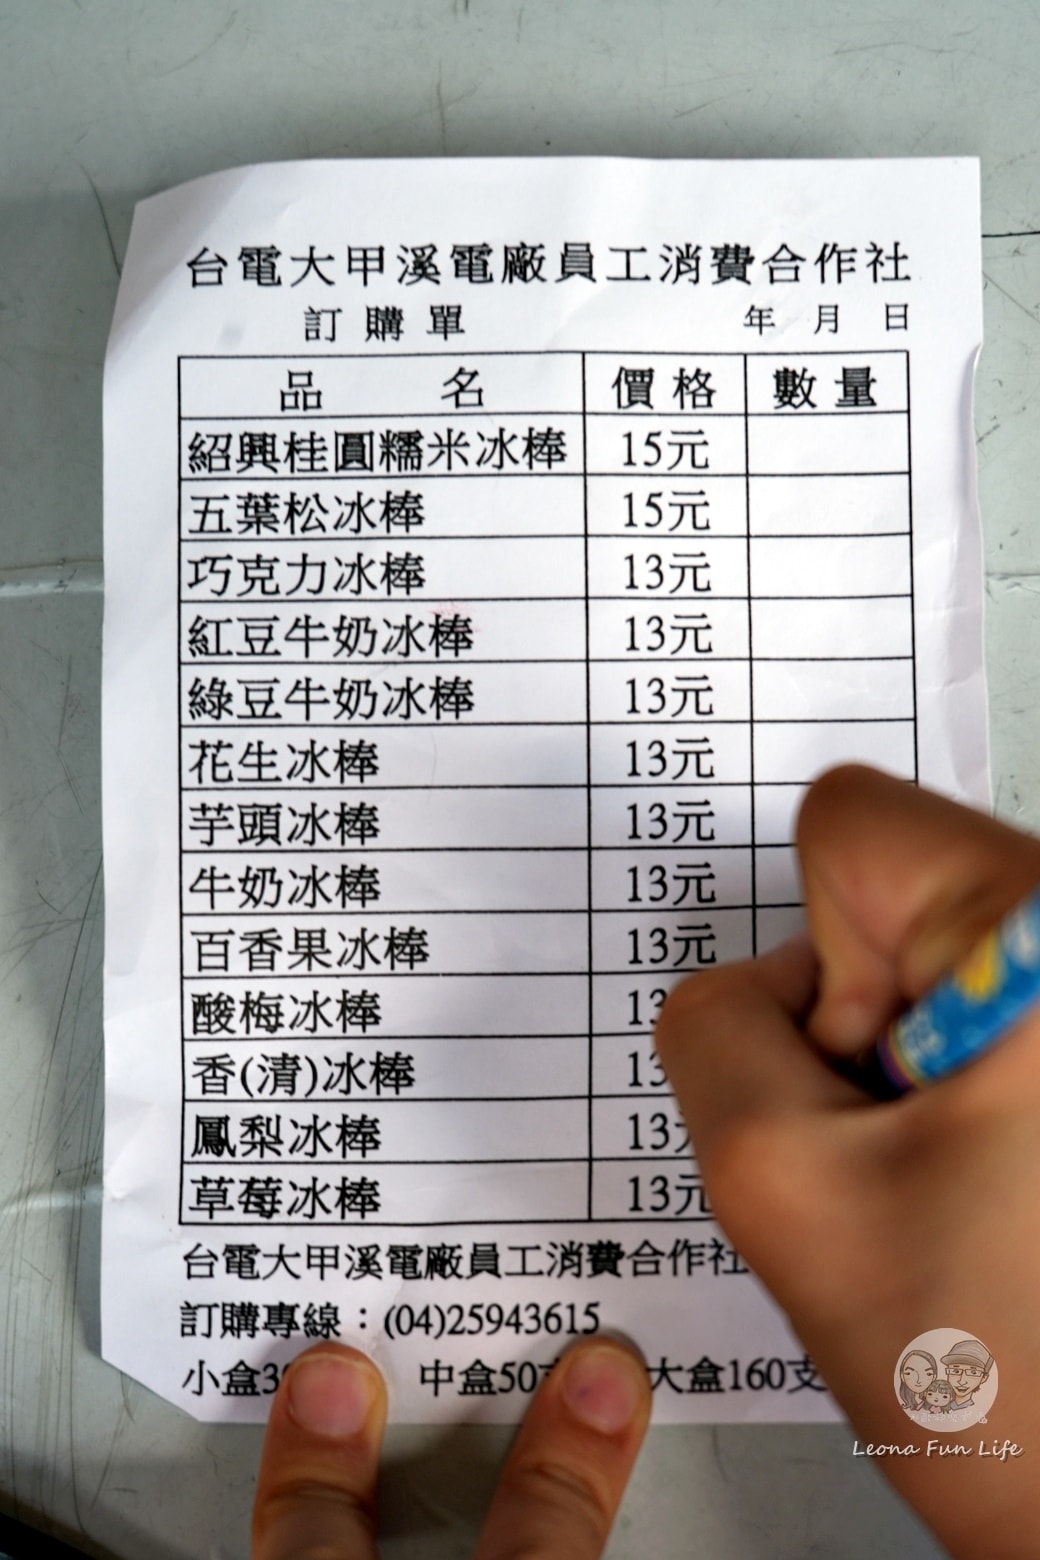 台電大甲溪電廠員工消費合作社
訂購單 年 月 日
品 名 價格 數量
紹興桂圓糯米冰棒 15元
五葉松冰棒 15元
巧克力冰棒 13元
紅豆牛奶冰棒 13元
綠豆牛奶冰棒 13元
花生冰棒 13元
芋頭冰棒 13元
牛奶冰棒 13元
百香果冰棒 13元
酸梅冰棒 13
香(清)冰棒 13
鳳梨冰棒 13元
草莓冰棒 13元
台電大甲溪電廠員工消費合作社
訂購專線：(04)25943615
小盒30 中盒50支 大盒160支
Leona Fun Life